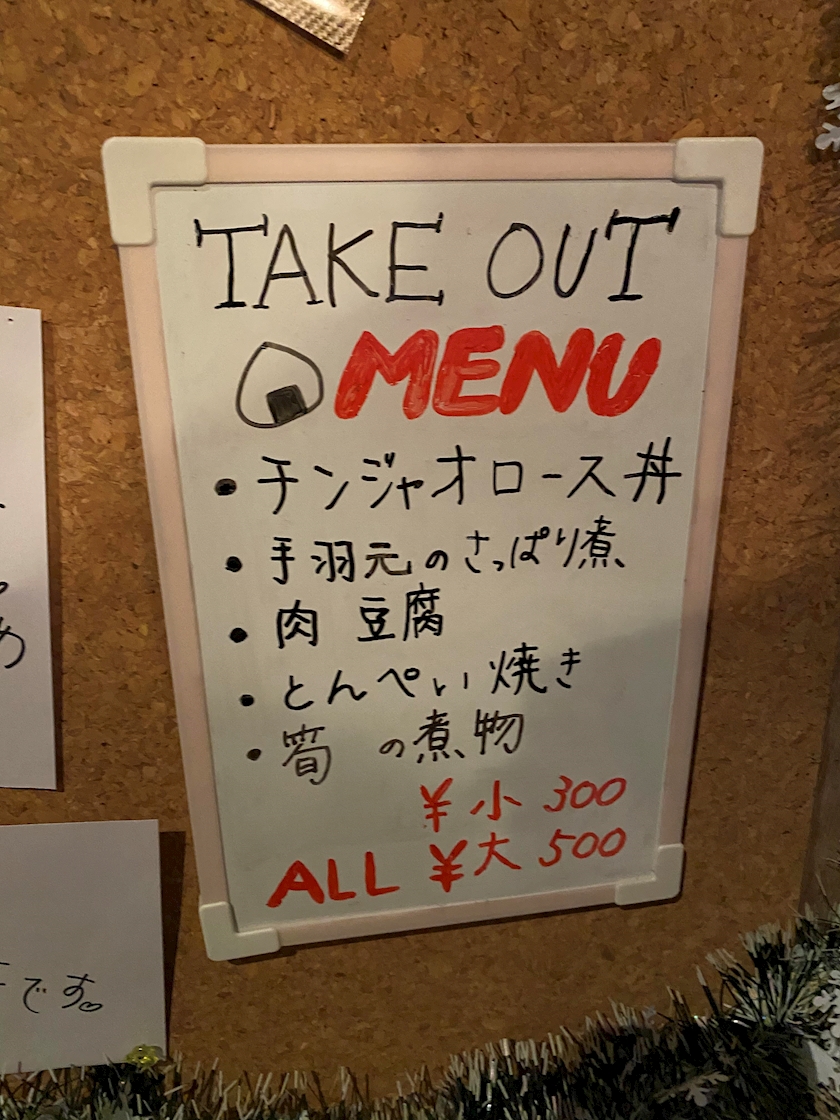 TAKE OUT
MENU
・チンジャオロース丼
・手羽元のさっぱり煮
・肉豆腐
・とんぺい焼き
・筍の煮物
¥小 300
ALL ¥大 500
め
です。